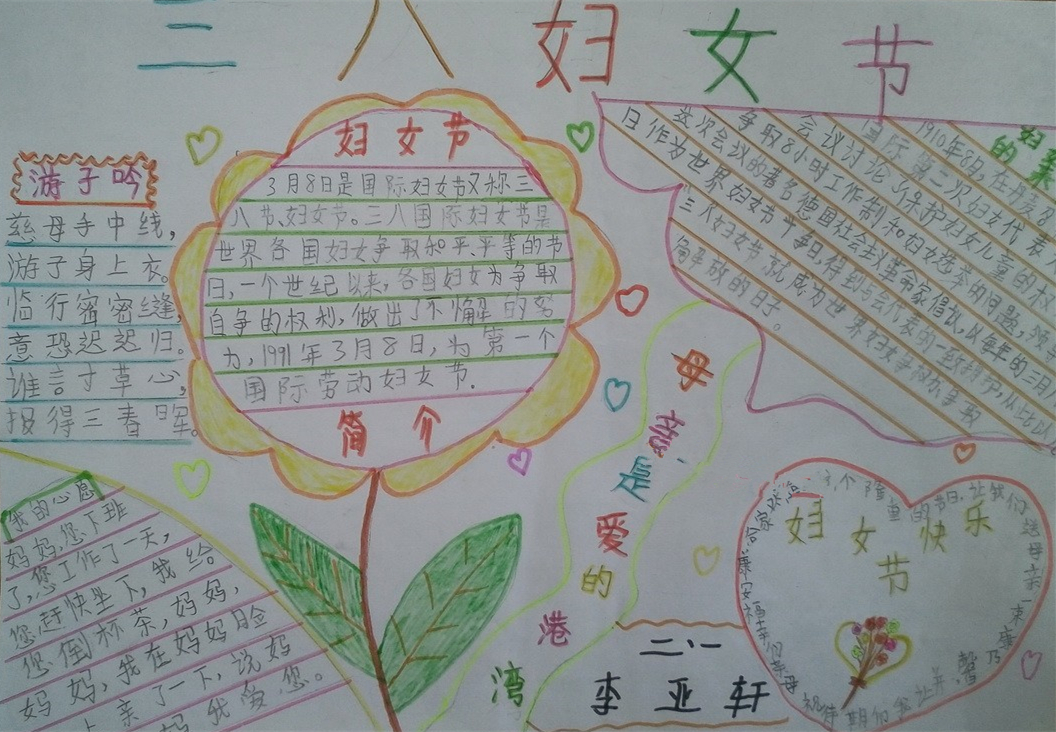 三八妇女节
游子吟
慈母手中线,
游子身上衣。
临行密密缝,
意恐迟迟归。
谁言寸草心,
报得三春晖。
妇女节
3月8日是国际妇女节又称三
八节、妇女节。三八国际妇女节是
世界各国妇女争取和平、平等的节
日,一个世纪以来,各国妇女为争取
自争的权利,做出了不懈解的努
力,1991年3月8日,为第一个
国际劳动妇女节.
简介
1910年8月,在丹麦
国际第二次妇女代表
会议讨论了保护妇女儿童的权
争取8小时工作制和妇女选举的问题,
这次会议的著名德国社会主义革命家倡议,以每年的三月
日作为世界妇女节
三八妇女节就成为世界妇女争权力争取
解放的日子。
我的心愿
妈妈,您下班
了,您工作了一天,
您赶快坐下,我给
您倒杯茶,妈妈,
妈妈,我在妈妈脸
上亲了一下,说妈
妈我爱您。
母亲是爱的港湾
二·一
李亚轩
妇女节快乐
的节日,让我们